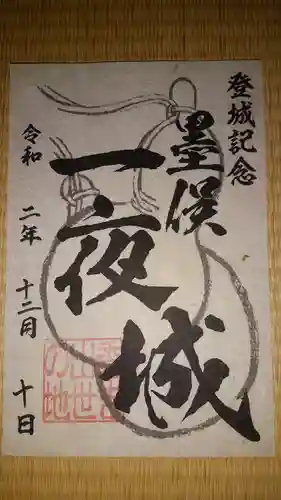 登城記念
墨俣
一夜城
令和 二年 十二月 十日
出世
の地